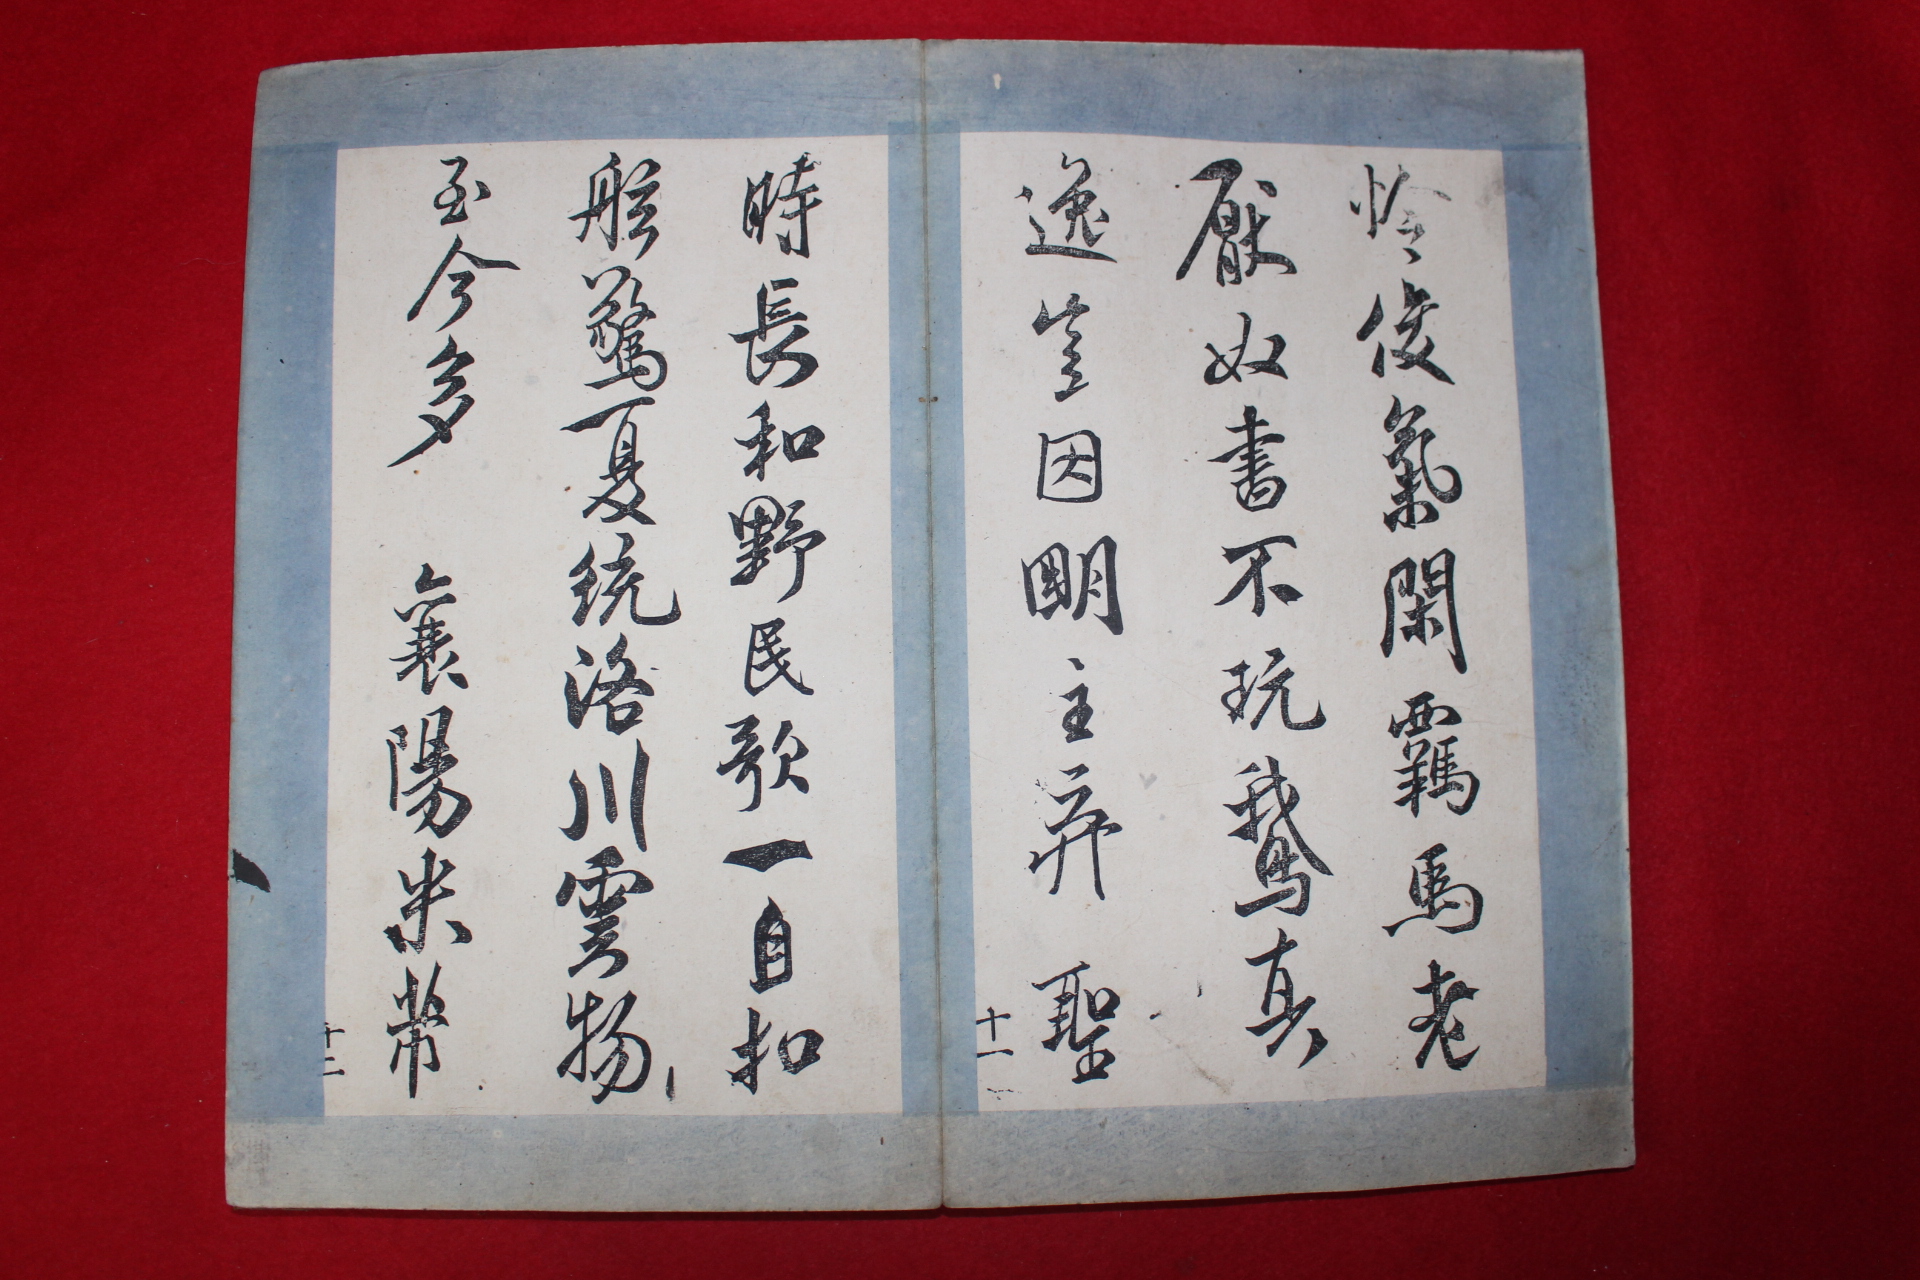 怜俊氣閑羈馬老
厭奴書不玩鵝真
逸豈因明主弃 聖
十一
時長和野民歌一自扣
舷驚夏統洛川雲物
至今多 襄陽米芾
十二